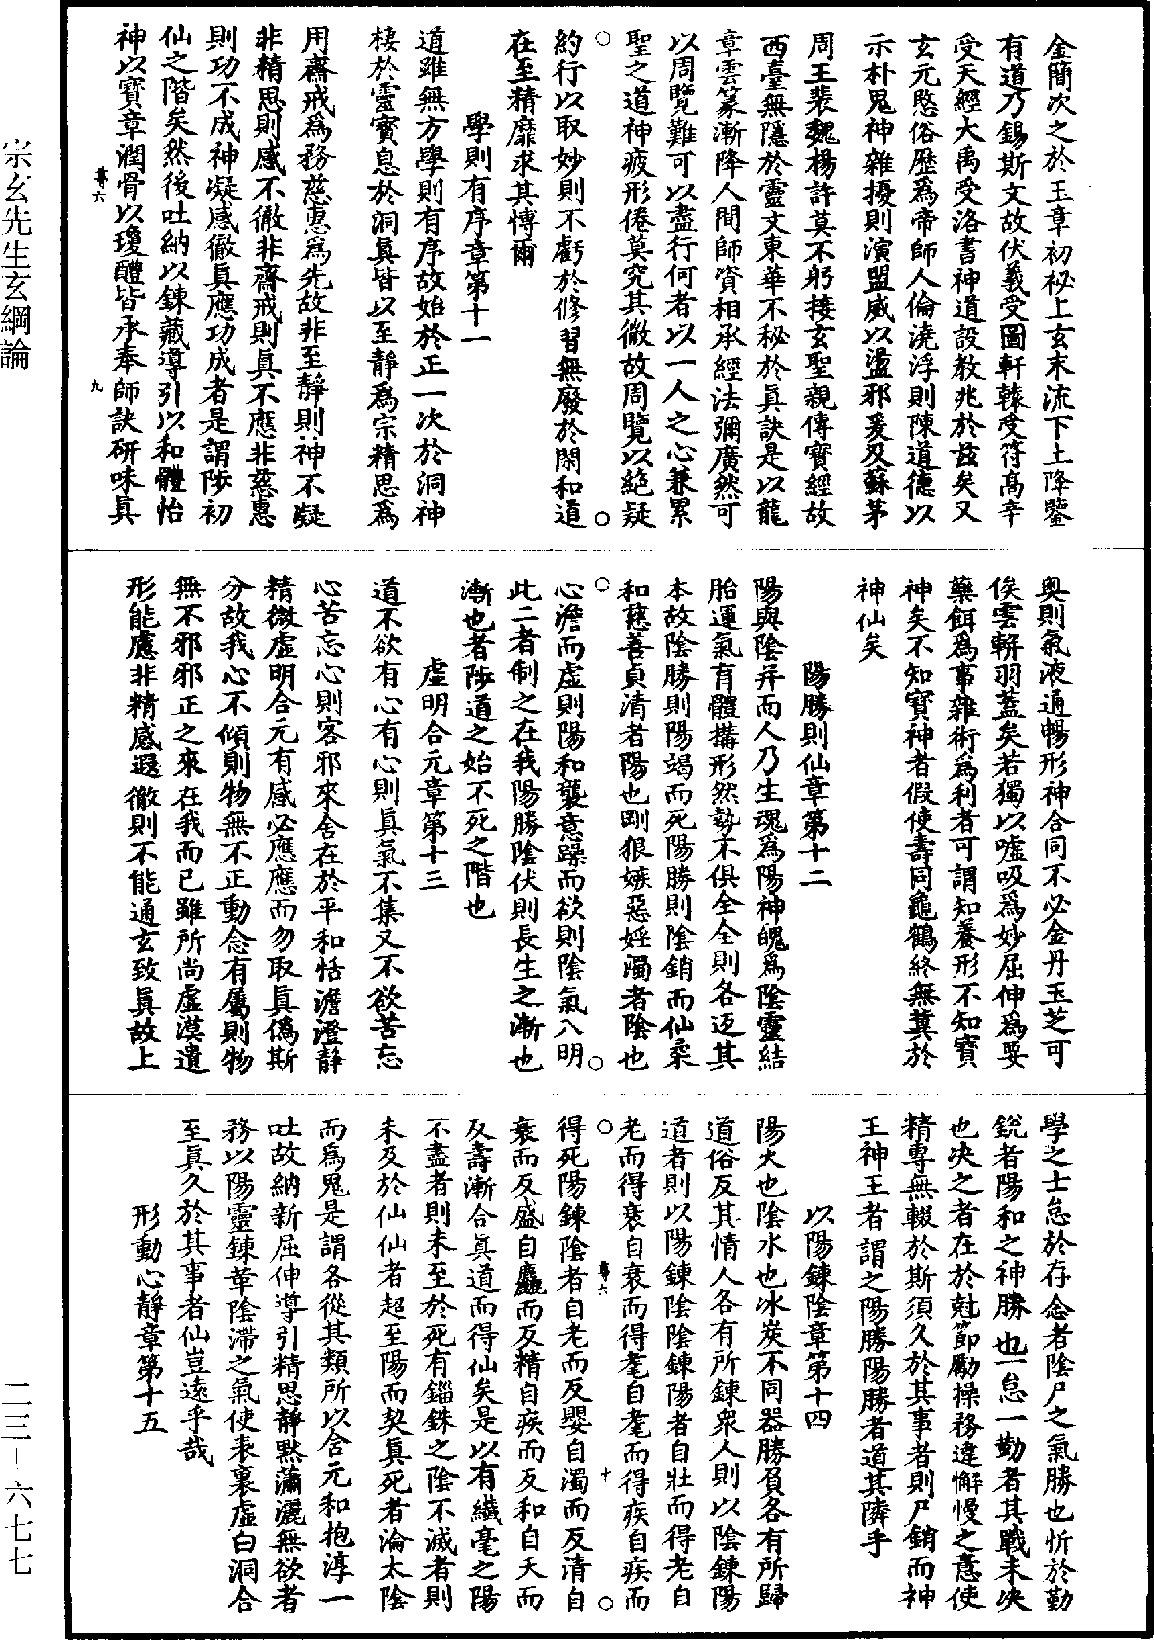 金簡次之於玉章初祕上玄末流下土降鑒
有道乃錫斯文故伏羲受圖軒轅受符高辛
受天經大禹受洛書神道設教兆於茲矣又
玄元愍俗歷爲帝師人倫澆浮則陳道德以
示朴鬼神雜擾則演盟威以盪邪爰及蘇茅
周王裴魏楊許莫不躬接玄聖親傳寶經故
西臺無隱於靈文東華不秘於眞訣是以龍
章雲篆漸降人間師資相承經法彌廣然可
以周覽難可以盡行何者以一人之心兼累
聖之道神疲形倦莫究其微故周覽以絕疑
約行以取妙則不虧於修習無廢於閑和道
在至精靡求其博爾
學則有序章第十一
道雖無方學則有序故始於正一次於洞神
棲於靈寶息於洞眞皆以至靜爲宗精思爲
用齋戒爲務慈惠爲先故非至靜則神不凝
非精思則感不徹非齋戒則眞不應非慈惠
則功不成神凝感徹眞應功成者是謂陟初
仙之階矣然後吐納以鍊藏導引以和體怡
神以寶章潤骨以瓊醴皆承奉師訣研味眞
尊六
九
奥則氣液通暢形神合同不必金丹玉芝可
俟雲軿羽蓋矣若獨以噓吸爲妙屈伸爲要
藥餌爲事雜術爲利者可謂知養形不知寶
神矣不知寶神者假使壽同龜鶴終無冀於
神仙矣
陽勝則仙章第十二
陽與陰并而人乃生魂爲陽神魄爲陰靈結
胎運氣育體搆形然勢不俱全全則各返其
本故陰勝則陽竭而死陽勝則陰銷而仙柔
和慈善貞清者陽也剛狠嫉惡婬濁者陰也
心澹而虛則陽和襲意躁而欲則陰氣入明
此二者制之在我陽勝陰伏則長生之漸也
漸也者陟道之始不死之階也
虛明合元章第十三
道不欲有心有心則眞氣不集又不欲苦忘
心苦忘心則客邪來舍在於平和恬澹澄靜
精微虛明合元有感必應應而勿取眞僞斯
分故我心不傾則物無不正動念有屬則物
無不邪邪正之來在我而已雖所尚虛漠遺
形能慮非精感遐徹則不能通玄致眞故上
學之士怠於存念者陰尸之氣勝也忻於勤
銳者陽和之神勝也一怠一勤者其戰未決
也决之者在於尅節勵操務違懈慢之意使
精專無輟於斯須久於其事者則尸銷而神
王神王者謂之陽勝陽勝者道其隣乎
以陽鍊陰章第十四
陽火也陰水也冰炭不同器勝負各有所歸
道俗反其情人各有所鍊衆人則以陰鍊陽
道者則以陽鍊陰陰鍊陽者自壯而得老自
老而得衰自衰而得耄自耄而得疾自疾而
尊六
十
得死陽鍊陰者自老而反嬰自濁而反清自
衰而反盛自麤而反精自疾而反和自夭而
反壽漸合眞道而得仙矣是以有纖毫之陽
不盡者則未至於死有錙銖之陰不滅者則
未及於仙仙者超至陽而契眞死者淪太陰
而爲鬼是謂各從其類所以含元和抱淳一
吐故納新屈伸導引精思靜默瀟灑無欲者
務以陽靈鍊革陰滯之氣使表裏虛白洞合
至眞久於其事者仙豈遠乎哉
形動心靜章第十五
宗玄先生玄綱論
二三－六七七